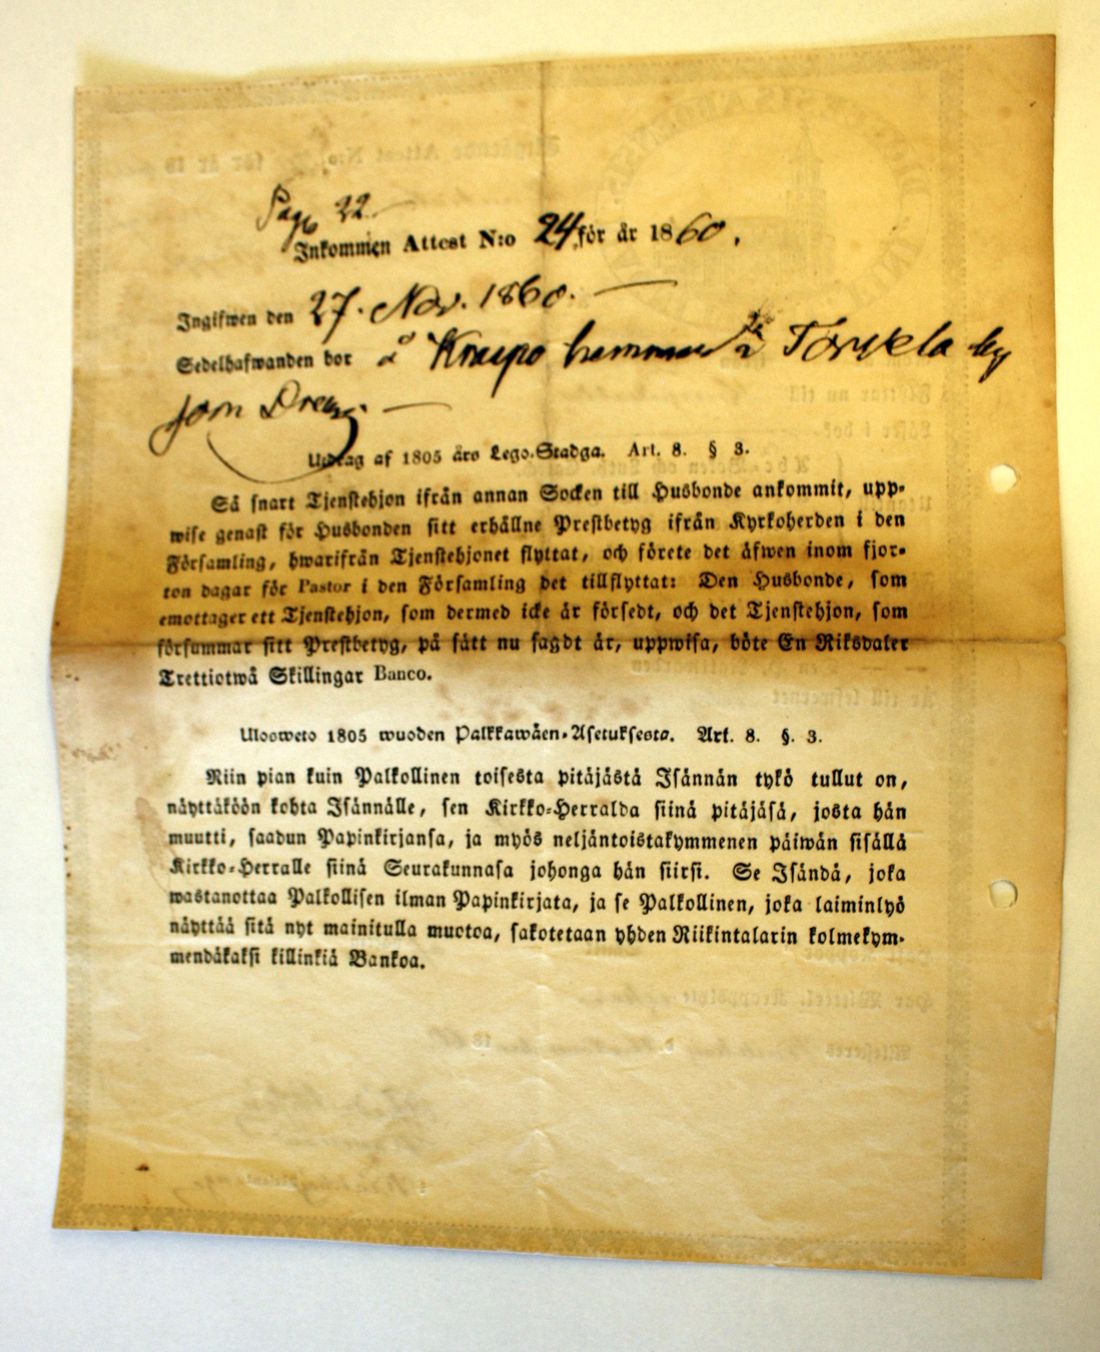 Pag. 22.
Inkommen Attest N:o 24 för år 1860.
Ingifwen den 27. Nov. 1860.
Sedelhafwanden bor å Knaapo hemman i Torkkela by
som Dreng.
Utdrag af 1805 års Lego-Stadga. Art. 8. § 3.
Så snart Tjenstehjon ifrån annan Socken till Husbonde ankommit, upp-
wise genast för Husbonden sitt erhållne Prestbetyg ifrån Kyrkoherden i den
Församling, hwarifrån Tjenstehjonet flyttat, och förete det äfwen inom fjor-
ton dagar för Pastor i den Församling det tillflyttat: Den Husbonde, som
emottager ett Tjenstehjon, som dermed icke är försedt, och det Tjenstehjon, som
försummar sitt Prestbetyg, på sätt nu sagdt är, uppwisa, böte En Riksdaler
Trettiotwå Skillingar Banco.
Ulosweto 1805 wuoden Palkkawäen-Asetuksesta. Art. 8. §. 3.
Niin pian kuin Palkollinen toisesta pitäjästä Isännän tykö tullut on,
näyttäköön kohta Isännälle, sen Kirkko-Herralda siinä pitäjäsä, josta hän
muutti, saadun Papinkirjansa, ja myös neljäntoistakymmenen päiwän sisällä
Kirkko-Herralle siinä Seurakunnasa johonga hän siirsi. Se Isändä, joka
wastanottaa Palkollisen ilman Papinkirjata, ja se Palkollinen, joka laiminlyö
näyttää sitä nyt mainitulla muotoa, sakotetaan yhden Riikintalarin kolmekym-
mendäkaksi killinkiä Bankoa.